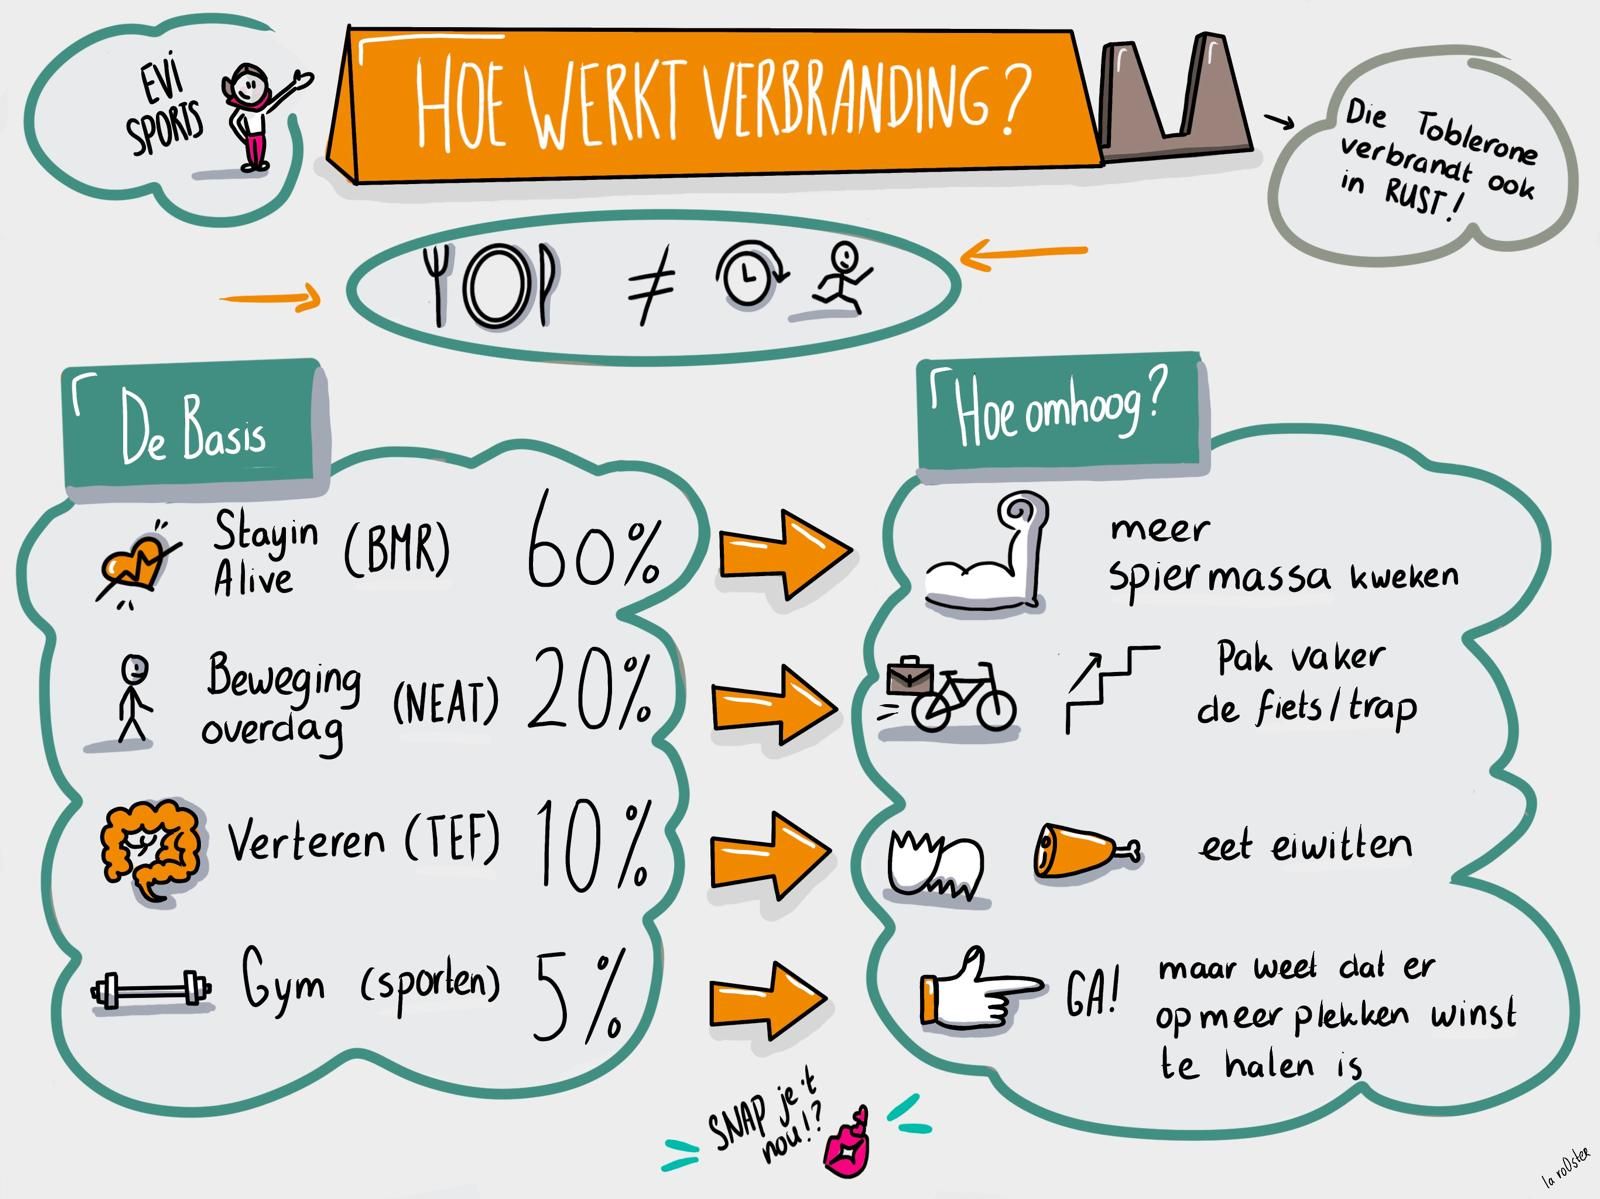 EVI
SPORTS
HOE WERKT VERBRANDING?
Die Toblerone
verbrandt ook
in RUST!
≠
De Basis
Stayin
Alive
(BMR)
60%
Beweging
overdag
(NEAT)
20%
Verteren (TEF)
10%
Gym (sporten)
5%
Hoe omhoog?
meer
spiermassa kweken
Pak vaker
de fiets/trap
eet eiwitten
GA!
maar weet dat er
op meer plekken winst
te halen is
SNAP je 't
nou!?
la roOster